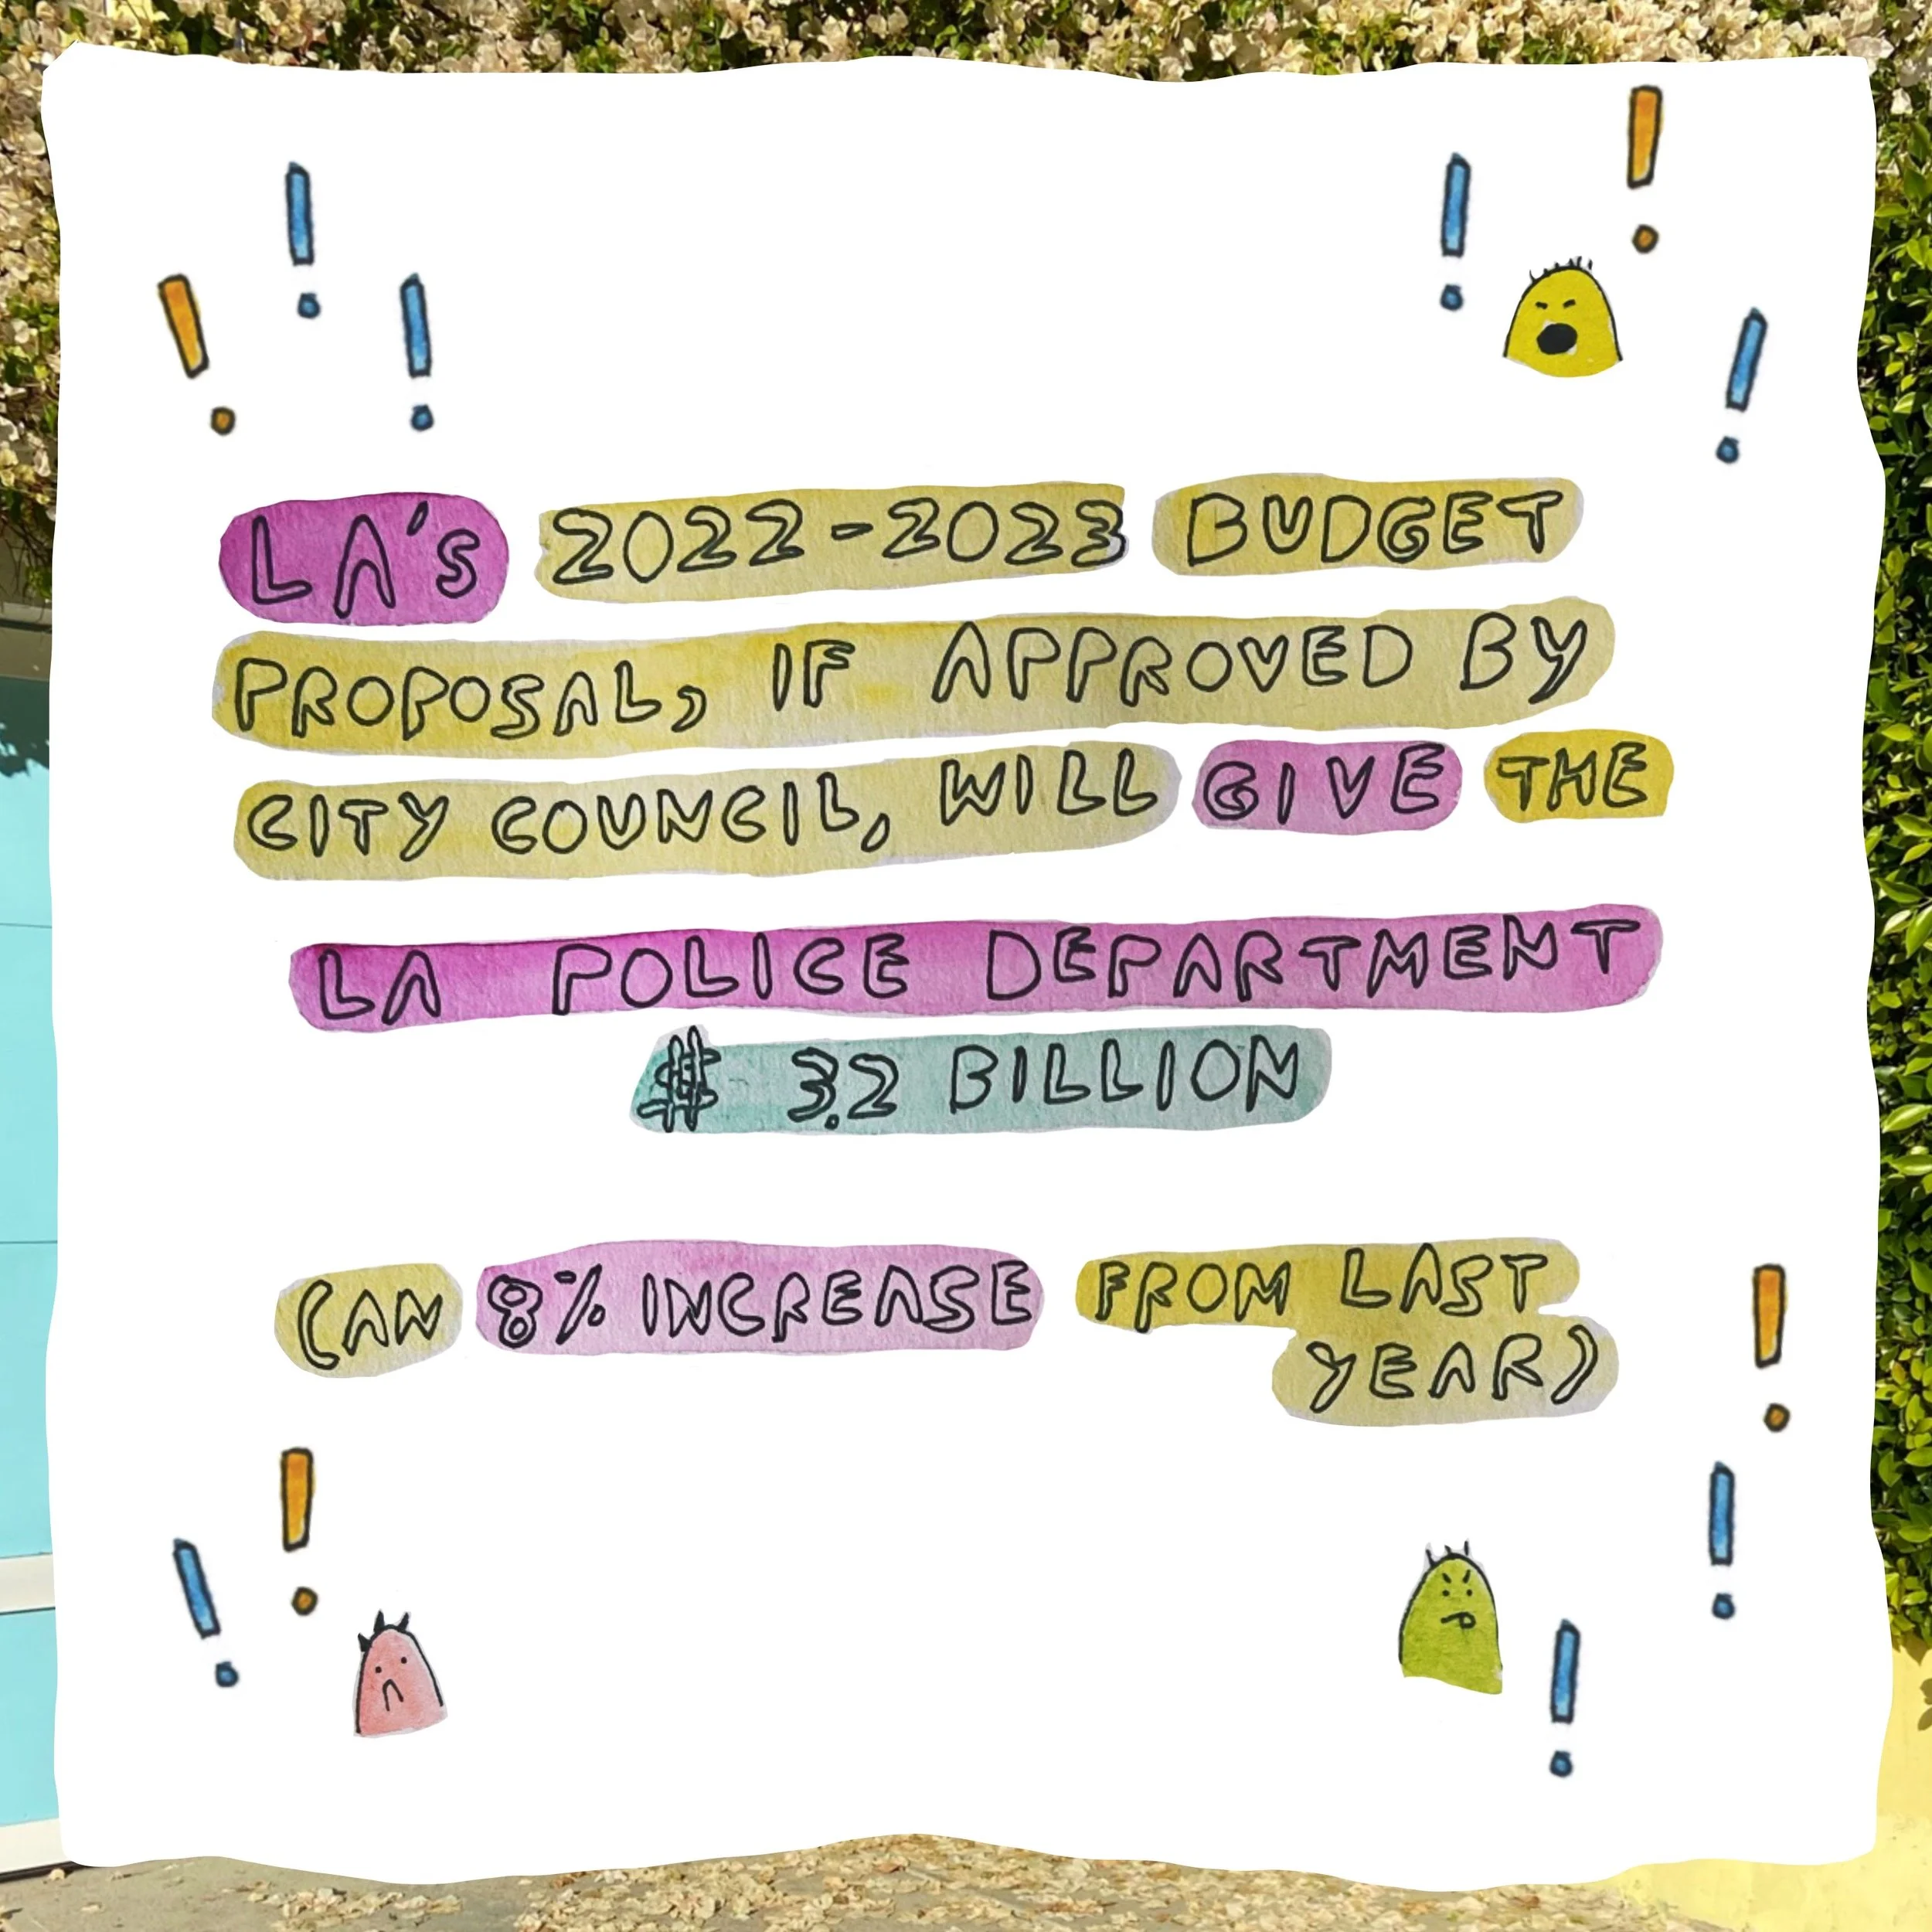 LA'S 2022-2023 BUDGET
PROPOSAL, IF APPROVED BY
CITY COUNCIL, WILL GIVE THE
LA POLICE DEPARTMENT
$ 3.2 BILLION
(AN 8% INCREASE FROM LAST
YEAR)